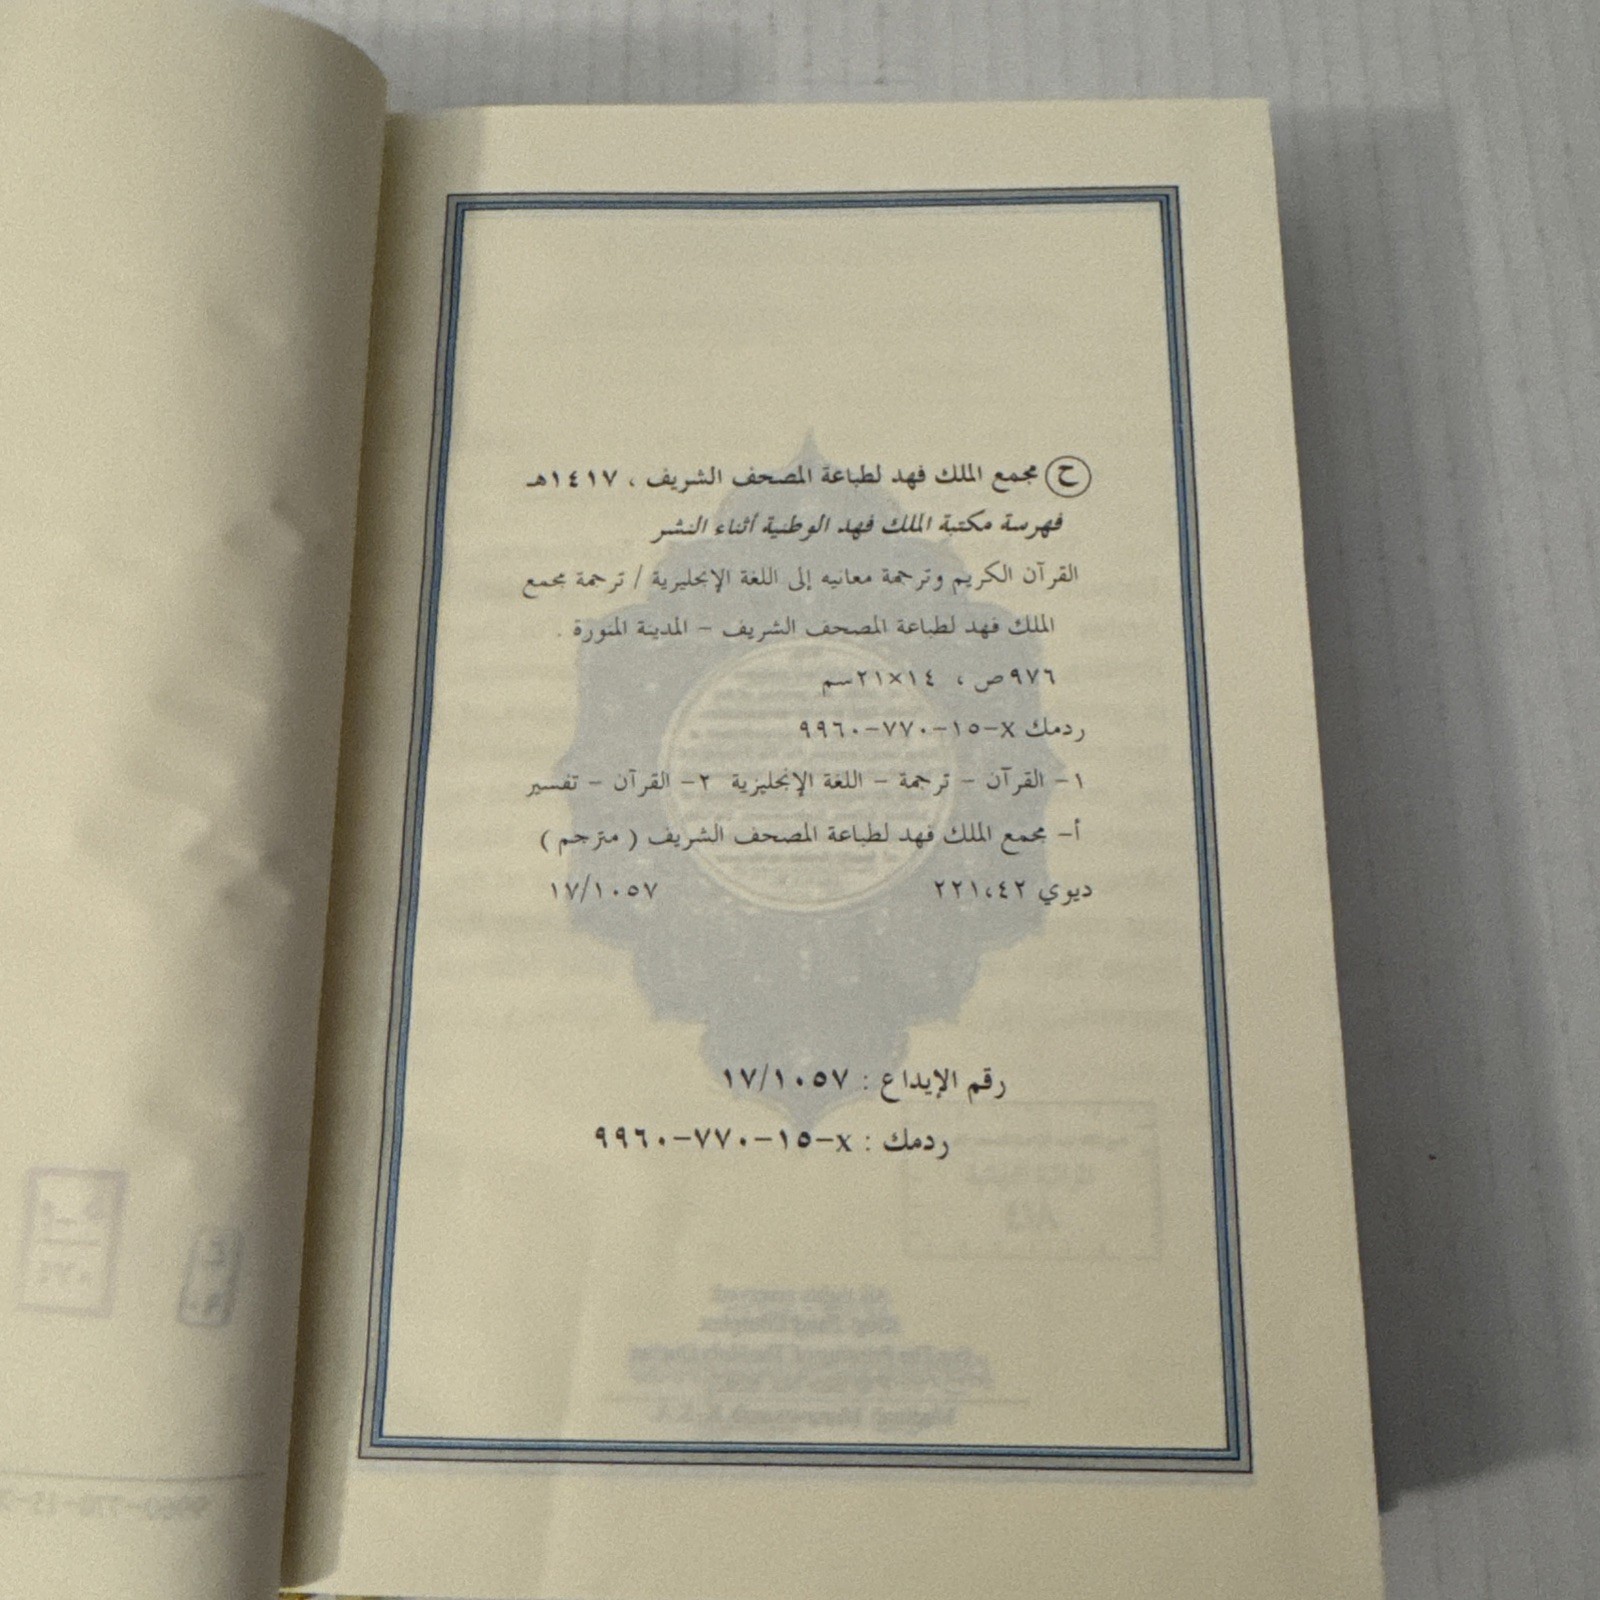 ح مجمع الملك فهد لطباعة المصحف الشريف ، ١٤١٧هـ
فهرسة مكتبة الملك فهد الوطنية أثناء النشر
القرآن الكريم وترجمة معانيه إلى اللغة الإنجليزية / ترجمة مجمع
الملك فهد لطباعة المصحف الشريف - المدينة المنورة .
٩٧٦ص ، ١٤×٢١سم
ردمك x-١٥-٧٧٠-٩٩٦٠
١- القرآن - ترجمة - اللغة الإنجليزية ٢- القرآن - تفسير
أ- مجمع الملك فهد لطباعة المصحف الشريف ( مترجم )
ديوي ٢٢١،٤٢ ١٧/١٠٥٧
رقم الإيداع : ١٧/١٠٥٧
ردمك : x-١٥-٧٧٠-٩٩٦٠